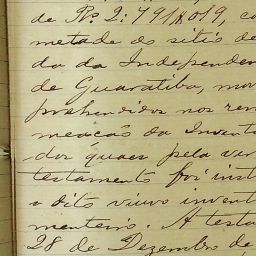 de Rs. 2:791$019, co
metade do sitio de
da da Independen
de Guaratiba, mo
prehendidos nos ren
meacão da Invent
dos quaes pela ver
testamento foi inst
o dito viuvo invent
menteiro. A testa
28 de Dezembro de